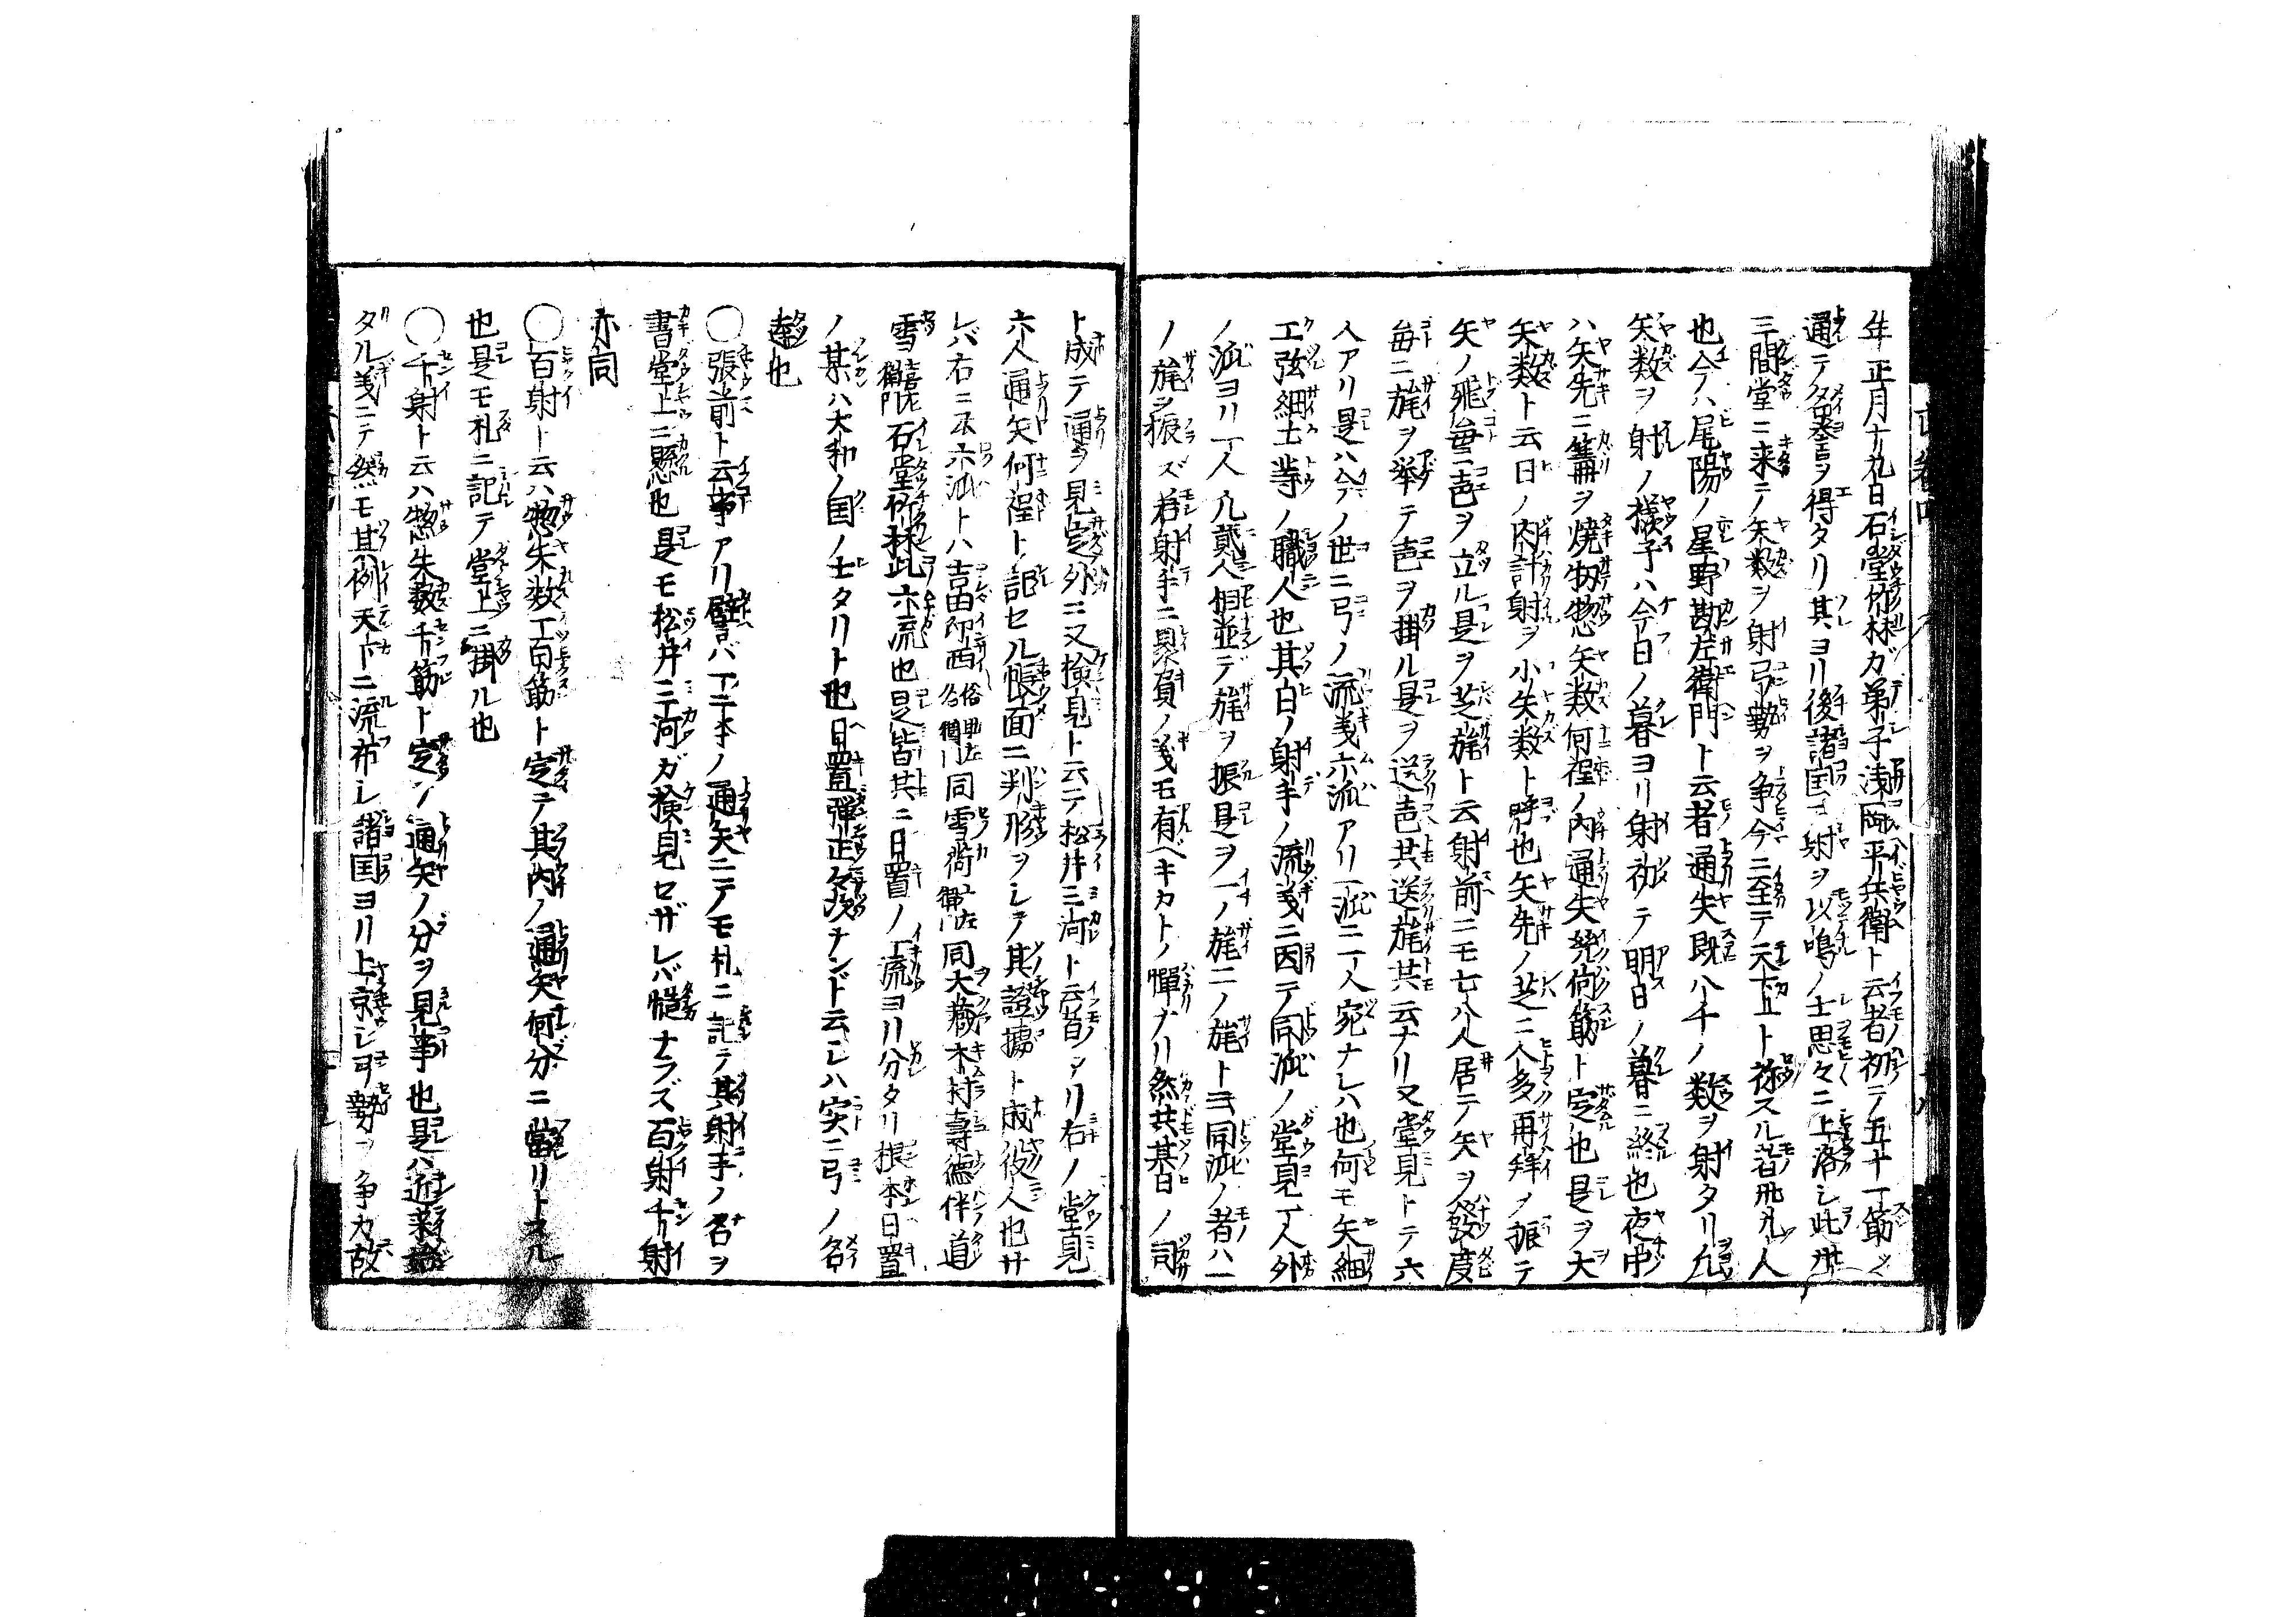 年正月十九日石堂竹林ガ弟子浅岡平兵衛ト云者初テ五十一筋ヲ
通テ名誉ヲ得タリ其ヨリ後諸国ニ射ヲ以鳴ノ士思々ニ上洛シ此
三間堂ニ来テ矢数ヲ射弓勢ヲ争今ニ至テ天下上ト称スル者
也今ハ尾陽ノ星野勘左衛門ト云者通矢既八千ノ数ヲ射タリ凡
矢数ヲ射ノ様子ハ今日ノ暮ヨリ射初テ明日ノ暮ニ終也夜中
ハ矢先ニ篝ヲ焼扨惣矢数何程ノ内通矢幾何筋ト定也是ヲ大
矢数ト云日ノ内計射ヲ小矢数ト呼也矢先ノ芝ニ人多再拜ノ振テ
矢ノ飛毎ニ声ヲ立ル是ヲ芝旄ト云射前ニモ七八人居テ矢ヲ發度
毎ニ旄ヲ挙テ声ヲ掛ル是ヲ送声共送旄共云ナリ又堂見トテ六
人アリ是ハ今ノ世ニ弓ノ流義六流アリ一流ニ一人宛ナレハ也何モ矢細
工弦細工等ノ職人也其日ノ射手ノ流義ニ因テ同流ノ堂見一人外
ノ流ヨリ一人凡貳人相並デ旄ヲ振是ヲ一ノ旄二ノ旄トヨ同流ノ者ハ一
ノ旄ヲ振ズ若射手ニ贔負ノ義モ有ベキカトノ憚ナリ然共其日ノ司
ト成テ通ヲ見定外ニ又検見ト云テ松井三河ト云者アリ右ノ堂見
六人通矢何程ト記セル帳面ニ判形ヲシテ其證據ト成役人也サ
レバ右ニ云六流トハ吉田印西同雪荷同大蔵木村壽徳伴道
雪石堂竹林此六流也是皆其二日置ノ一流ヨリ分タリ根本日置
ノ某ハ大和ノ国ノ士タリト也日置弾正ナンド云シハ実ニ弓ノ名
達也
○張前ト云事アリ譬バ一二本ノ通矢ニテモ札ニ記テ其射手ノ名ヲ
書堂上ニ懸也是モ松井三河ガ検見セザレバ慥ナラズ百射千射
亦同
○百射ト云ハ惣矢数ヱ百筋ト定テ其内ノ通矢何分ニ當リトスル
也是モ札ニ記テ堂上ニ掛ル也
○千射ト云ハ惣矢数千筋ト定ノ通矢ノ分ヲ見事也是ハ近来始
タル義ニテ然モ其例天下ニ流布シ諸国ヨリ上京シ弓勢ヲ争カ故